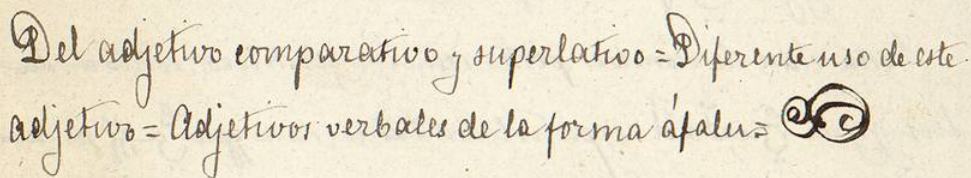 Del adjetivo comparativo y superlativo = Diferente uso de este
adjetivo = Adjetivos verbales de la forma áfalu =